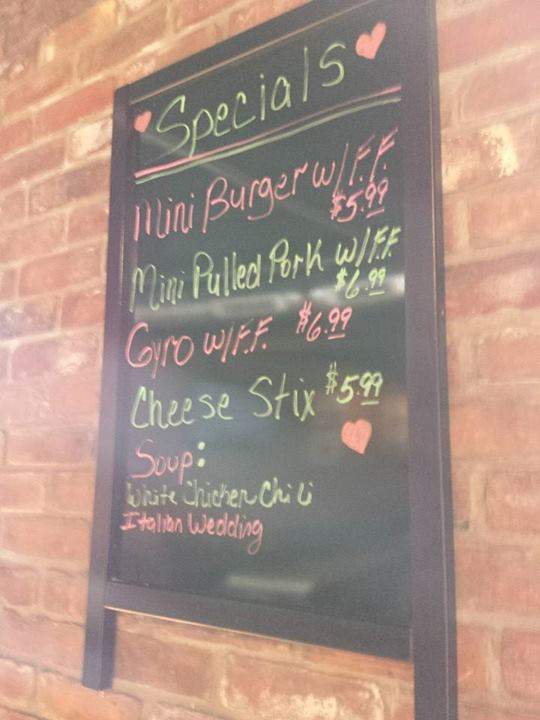 Specials
Mini Burger w/F.F.
$5.99
Mini Pulled Pork w/F.F.
$6.99
Gyro w/F.F. $6.99
Cheese Stix $5.99
Soup:
White Chicken Chili
Italian Wedding